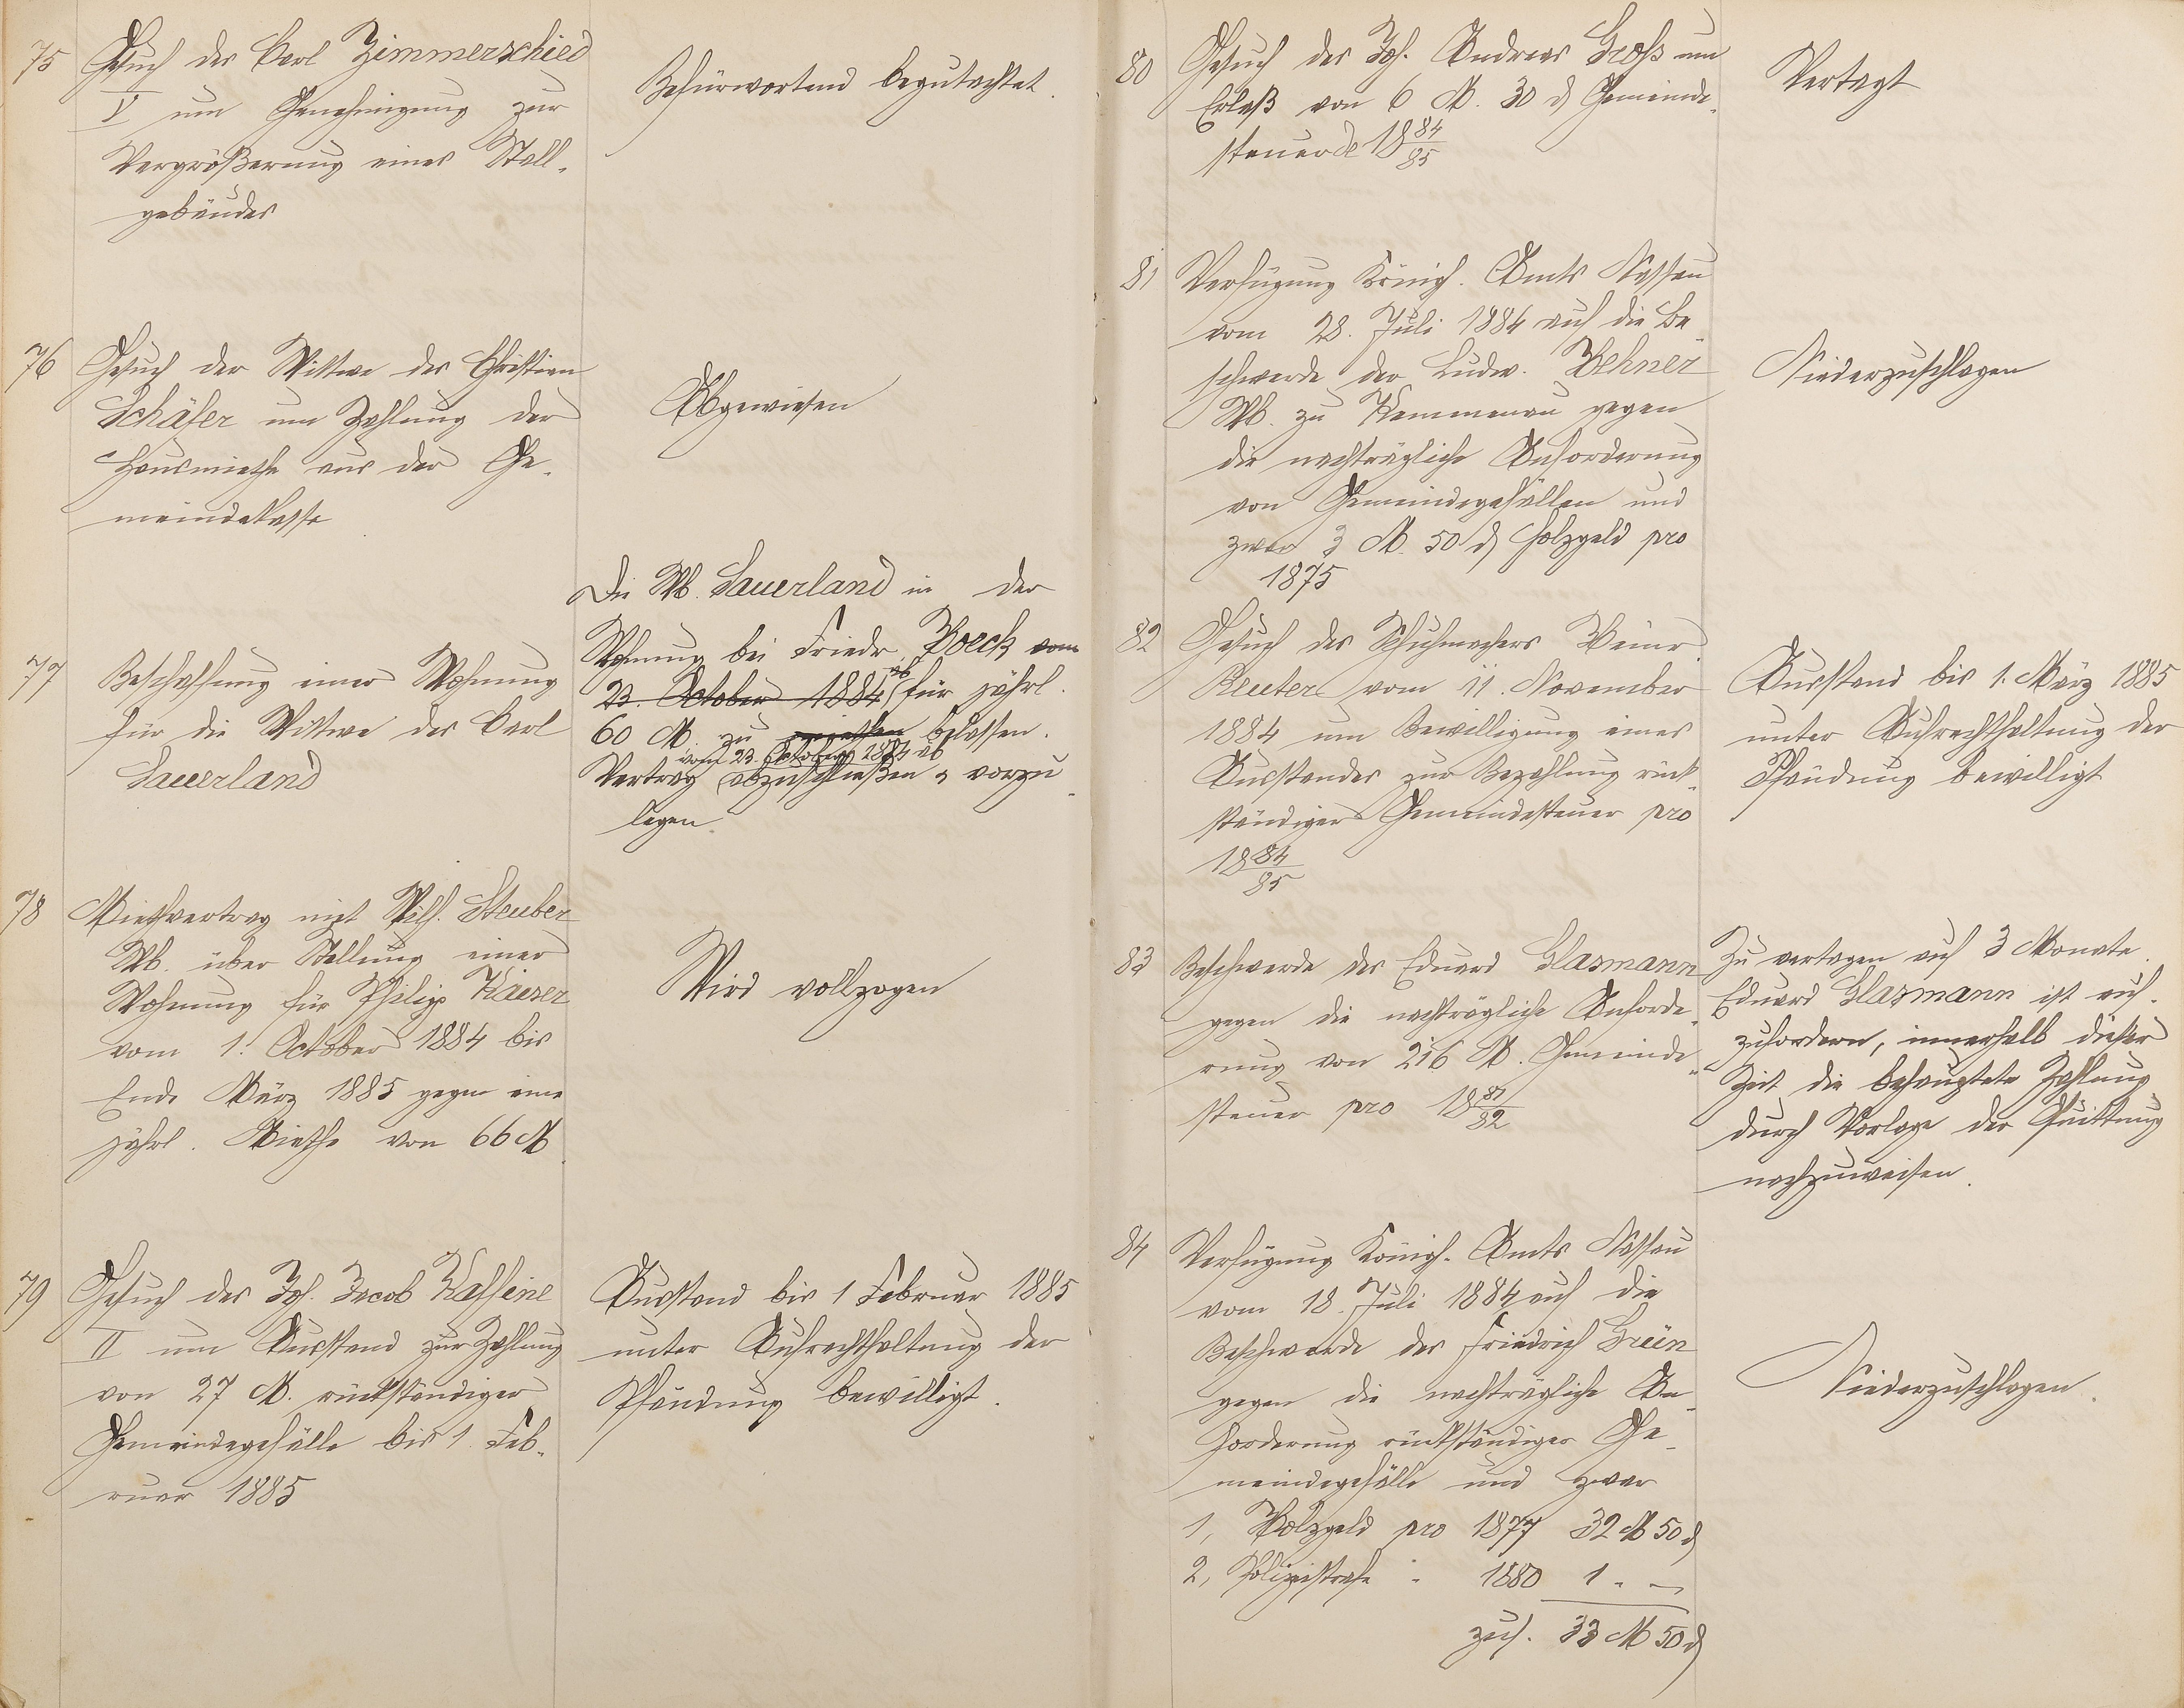 75 Gesuch des Carl Zimmerschied
V um Genehmigung zur
Vergrößerung eines Stall-
gebäudes
Befürwortend begutachtet.
76 Gesuch der Wittwe des Christian
Schäfer um Zahlung der
Hausmiethe aus der Ge-
meindekasse
Abgewiesen
77 Beschaffung einer Wohnung
für die Wittwe des Carl
Sauerland
Die W. Sauerland in der
Wohnung bei Friedr. Hoeck vom
23. October 1884 ab für jährl.
60 M. zu miethen belassen.
vom 23. October 1884 ab
Vertrag abzuschließen & vorzu-
legen.
78 Miethvertrag mit Wilh. Steuber
W. über Stellung einer
Wohnung für Philipp Kaiser
vom 1. October 1884 bis
Ende März 1885 gegen eine
jährl. Miethe von 66 M.
Wird vollzogen
79 Gesuch des Joh. Jacob Kaffine
II um Ausstand zur Zahlung
von 27 M. rückständiger
Gemeindegefälle bis 1. Feb-
ruar 1885
Ausstand bis 1 Februar 1885
unter Aufrechthaltung der
Pfändung bewilligt.
80 Gesuch des Joh. Andreas Groß um
Erlaß von 6 M. 30 ₰ Gemeinde-
steuer de 18 84/85
Vertagt
81 Verfügung Königl. Amts Nassau
vom 28. Juli 1884 auf die Be-
schwerde der Ludw. Lehner
W. zu Kemmenau gegen
die nachträgliche Anforderung
von Gemeindegefällen und
zwar 3 M. 50 ₰ Holzgeld pro
1875
Niederzuschlagen
82 Gesuch des Schuhmachers Heinr.
Reuter vom 11. November
1884 um Bewilligung eines
Ausstandes zur Bezahlung rück-
ständiger Gemeindesteuer pro
18 84/85
Ausstand bis 1. März 1885
unter Aufrechthaltung der
Pfändung bewilligt
83 Beschwerde des Eduard Glasmann
gegen die nachträgliche Anforde-
rung von 216 M. Gemeinde-
steuer pro 18 81/82
Zu vertagen auf 3 Monate.
Eduard Glasmann ist auf-
zufordern, innerhalb dieser
Zeit die behauptete Zahlung
durch Vorlage der Quittung
nachzuweisen.
84 Verfügung Königl. Amts Nassau
vom 18. Juli 1884 auf die
Beschwerde des Friedrich Grün
gegen die nachträgliche An-
forderung rückständiger Ge-
meindegefälle und zwar
1, Holzgeld pro 1877 32 M 50 ₰
2, Polizeistrafe " 1880 1 " —
zus. 33 M 50 ₰
Niederzuschlagen.